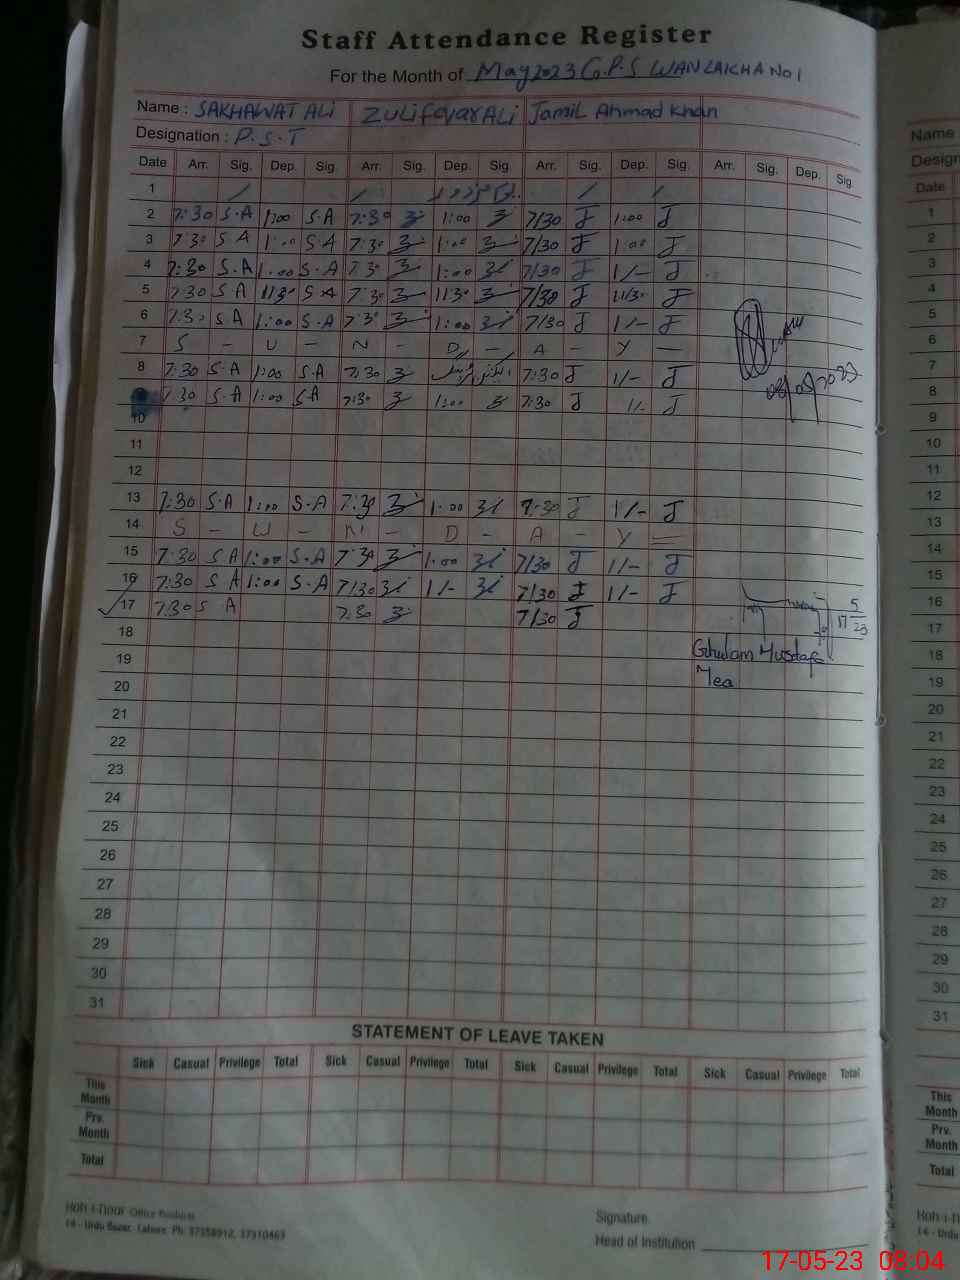 Staff Attendance Register
For the Month of May 2023 G.P.S WANLAKHA No 1
Name : SAKHAWAT ALI ZULifqyar ALi Jamil Ahmad Khan
Designation : P.S.T
Date Arr. Sig. Dep. Sig. Arr. Sig. Dep. Sig. Arr. Sig. Dep. Sig. Arr. Sig. Dep. Sig.
1
2 7:30 S.A 1:00 S.A 7:30 1:00 7/30 J 1:00 J
3 7:30 S.A 1:00 S.A 7:30 1:00 7/30 J 1:00 J
4 7:30 S.A 1:00 S.A 7:30 1:00 7/30 J 1/- J
5 7:30 S.A 11:30 S.A 7:30 11:30 7/30 J 11/30 J
6 7:30 S.A 1:00 S.A 7:30 1:00 7/30 J 1/- J
7 S - U - N - D - A - Y -
8 7:30 S.A 1:00 S.A 7:30 7:30 J 1/- J
7:30 S.A 1:00 S.A 7:30 1:00 7:30 J 1/- J
08/05/2023
10
11
12
13 7:30 S.A 1:00 S.A 7:30 1:00 7:30 J 1/- J
14 S - U - N - D - A - Y
15 7:30 S.A 1:00 S.A 7:30 1:00 7/30 J 1/- J
16 7:30 S.A 1:00 S.A 7/30 1/- 7/30 J 1/- J
17 7:30 S.A 7:30 7/30 J
17 5/23
18
Ghulam Mustafa
19
Mea
20
21
22
23
24
25
26
27
28
29
30
31
STATEMENT OF LEAVE TAKEN
Sick Casual Privilege Total Sick Casual Privilege Total Sick Casual Privilege Total Sick Casual Privilege Total
This Month
Prv. Month
Total
Koh-i-Noor Office Products
14 - Urdu Bazar, Lahore. Ph: 37358912, 37310463
Signature.
Head of Institution
Name
Design
Date
1
2
3
4
5
6
7
8
9
10
11
12
13
14
15
16
17
18
19
20
21
22
23
24
25
26
27
28
29
30
31
This Month
Prv. Month
Total
14 - Urdu
17-05-23 08:04